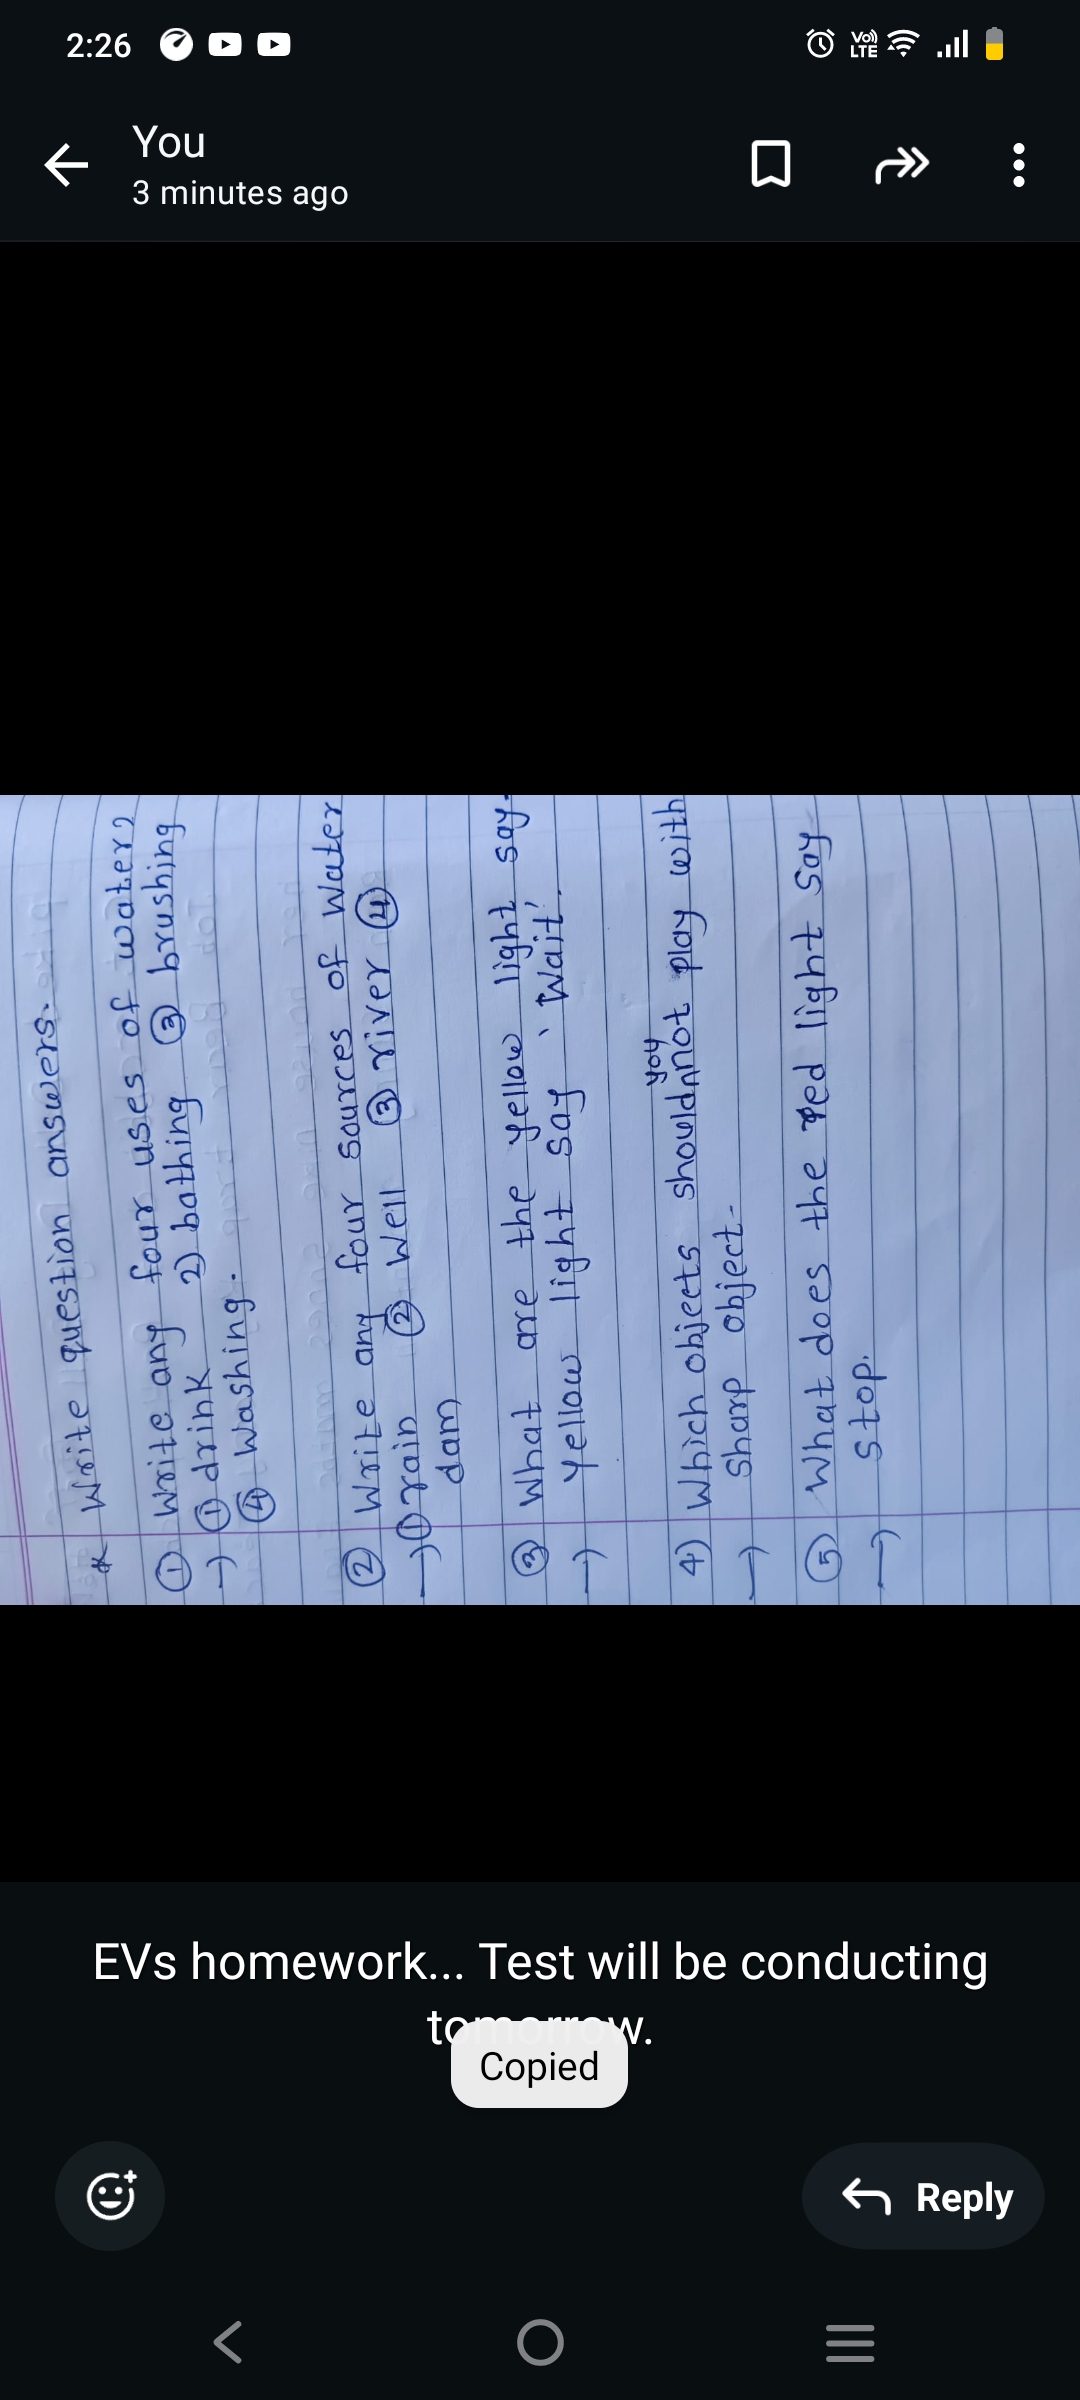 2:26
Vo))
LTE
You
3 minutes ago
* Write question answers.
① Write any four uses of water?
→ ① drink 2) bathing ③ brushing
④ Washing.
② Write any four sources of Water
→ ① rain ② Well ③ river ④
dam
③ What are the yellow light say.
→ Yellow light say 'Wait'.
you
4) Which objects should^not play with
→ Sharp object.
⑤ What does the red light Say
→ Stop.
EVs homework... Test will be conducting
tomorrow.
Copied
Reply